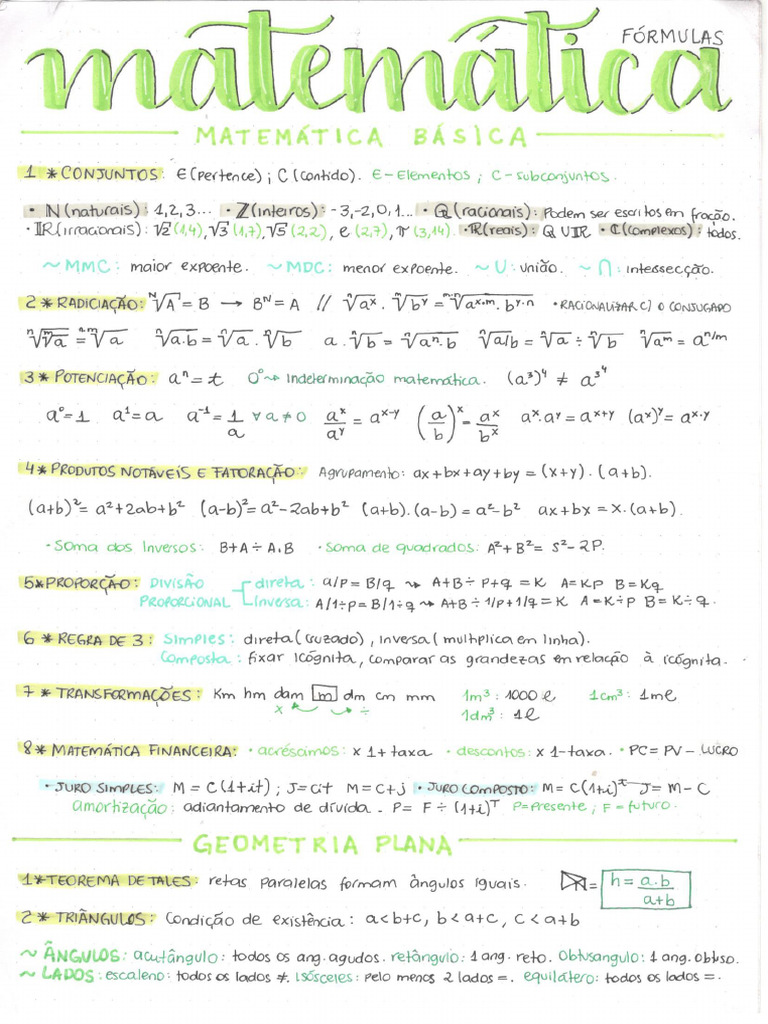 FÓRMULAS
matemática
MATEMÁTICA BÁSICA
1 * CONJUNTOS: E (pertence) ; C (contido). E - Elementos ; C - subconjuntos.
• ℕ (naturais): 1, 2, 3... • ℤ (inteiros): -3, -2, 0, 1... • ℚ (racionais): Podem ser escritos em fração.
• IR (irracionais): √2 (1,4), √3 (1,7), √5 (2,2), e (2,7), π (3,14). • ℝ (reais): ℚ U IR • ℂ (complexos): todos.
~ MMC: maior expoente. ~ MDC: menor expoente. ~ U: união. ~ ∩: interssecção.
2 * RADICIAÇÃO: ᴺ√A = B → Bᴺ = A // ⁿ√aˣ . ᵐ√bʸ = ᵐ·ⁿ√aˣ·ᵐ . bʸ·ⁿ • RACIONALIZAR C/ O CONJUGADO
ⁿ√ᵐ√a = ⁿ·ᵐ√a ⁿ√a.b = ⁿ√a . ⁿ√b a . ⁿ√b = ⁿ√aⁿ.b ⁿ√a/b = ⁿ√a ÷ ⁿ√b ⁿ√aᵐ = aⁿ/ᵐ
3 * POTENCIAÇÃO: aⁿ = t 0⁰ ↝ Indeterminação matemática. (a³)⁴ ≠ a^3^4
a⁰ = 1 a¹ = a a⁻¹ = 1/a ∀ a ≠ 0 aˣ/aʸ = aˣ⁻ʸ (a/b)ˣ = aˣ/bˣ aˣ.aʸ = aˣ⁺ʸ (aˣ)ʸ = aˣ·ʸ
4 * PRODUTOS NOTÁVEIS E FATORAÇÃO: Agrupamento: ax + bx + ay + by = (x+y) . (a+b).
(a+b)² = a² + 2ab + b² (a-b)² = a² - 2ab + b² (a+b).(a-b) = a² - b² ax + bx = x.(a+b).
• Soma dos Inversos: B+A ÷ A.B • Soma de quadrados: A² + B² = S² - 2P.
5 * PROPORÇÃO: DIVISÃO direta: a/p = B/q ↝ A+B ÷ p+q = K A = K.p B = Kq
PROPORCIONAL Inversa: A/1÷p = B/1÷q ↝ A+B ÷ 1/p + 1/q = K A = K÷p B = K÷q.
6 * REGRA DE 3: Simples: direta (cruzado), inversa (multiplica em linha).
Composta: fixar icógnita, comparar as grandezas em relação à icógnita.
7 * TRANSFORMAÇÕES: Km hm dam m dm cm mm 1m³: 1000 l 1cm³: 1ml
x ÷ 1dm³: 1l
8 * MATEMÁTICA FINANCEIRA: • acréscimos: x 1 + taxa • descontos: x 1 - taxa. • PC = PV - LUCRO
• JURO SIMPLES: M = C(1+it) ; J = Cit M = C + j • JURO COMPOSTO: M = C(1+i)ᵗ J = M - C
amortização: adiantamento de dívida - P = F ÷ (1+i)ᵀ P = Presente ; F = futuro.
GEOMETRIA PLANA
1 * TEOREMA DE TALES: retas paralelas formam ângulos iguais. = h = a.b/a+b
2 * TRIÂNGULOS: Condição de existência: a < b+c, b < a+c, c < a+b
~ ÂNGULOS: acutângulo: todos os ang. agudos. retângulo: 1 ang. reto. Obtusangulo: 1 ang. obtuso.
~ LADOS: escaleno: todos os lados ≠. Isósceles: pelo menos 2 lados =. equilátero: todos os lados =.